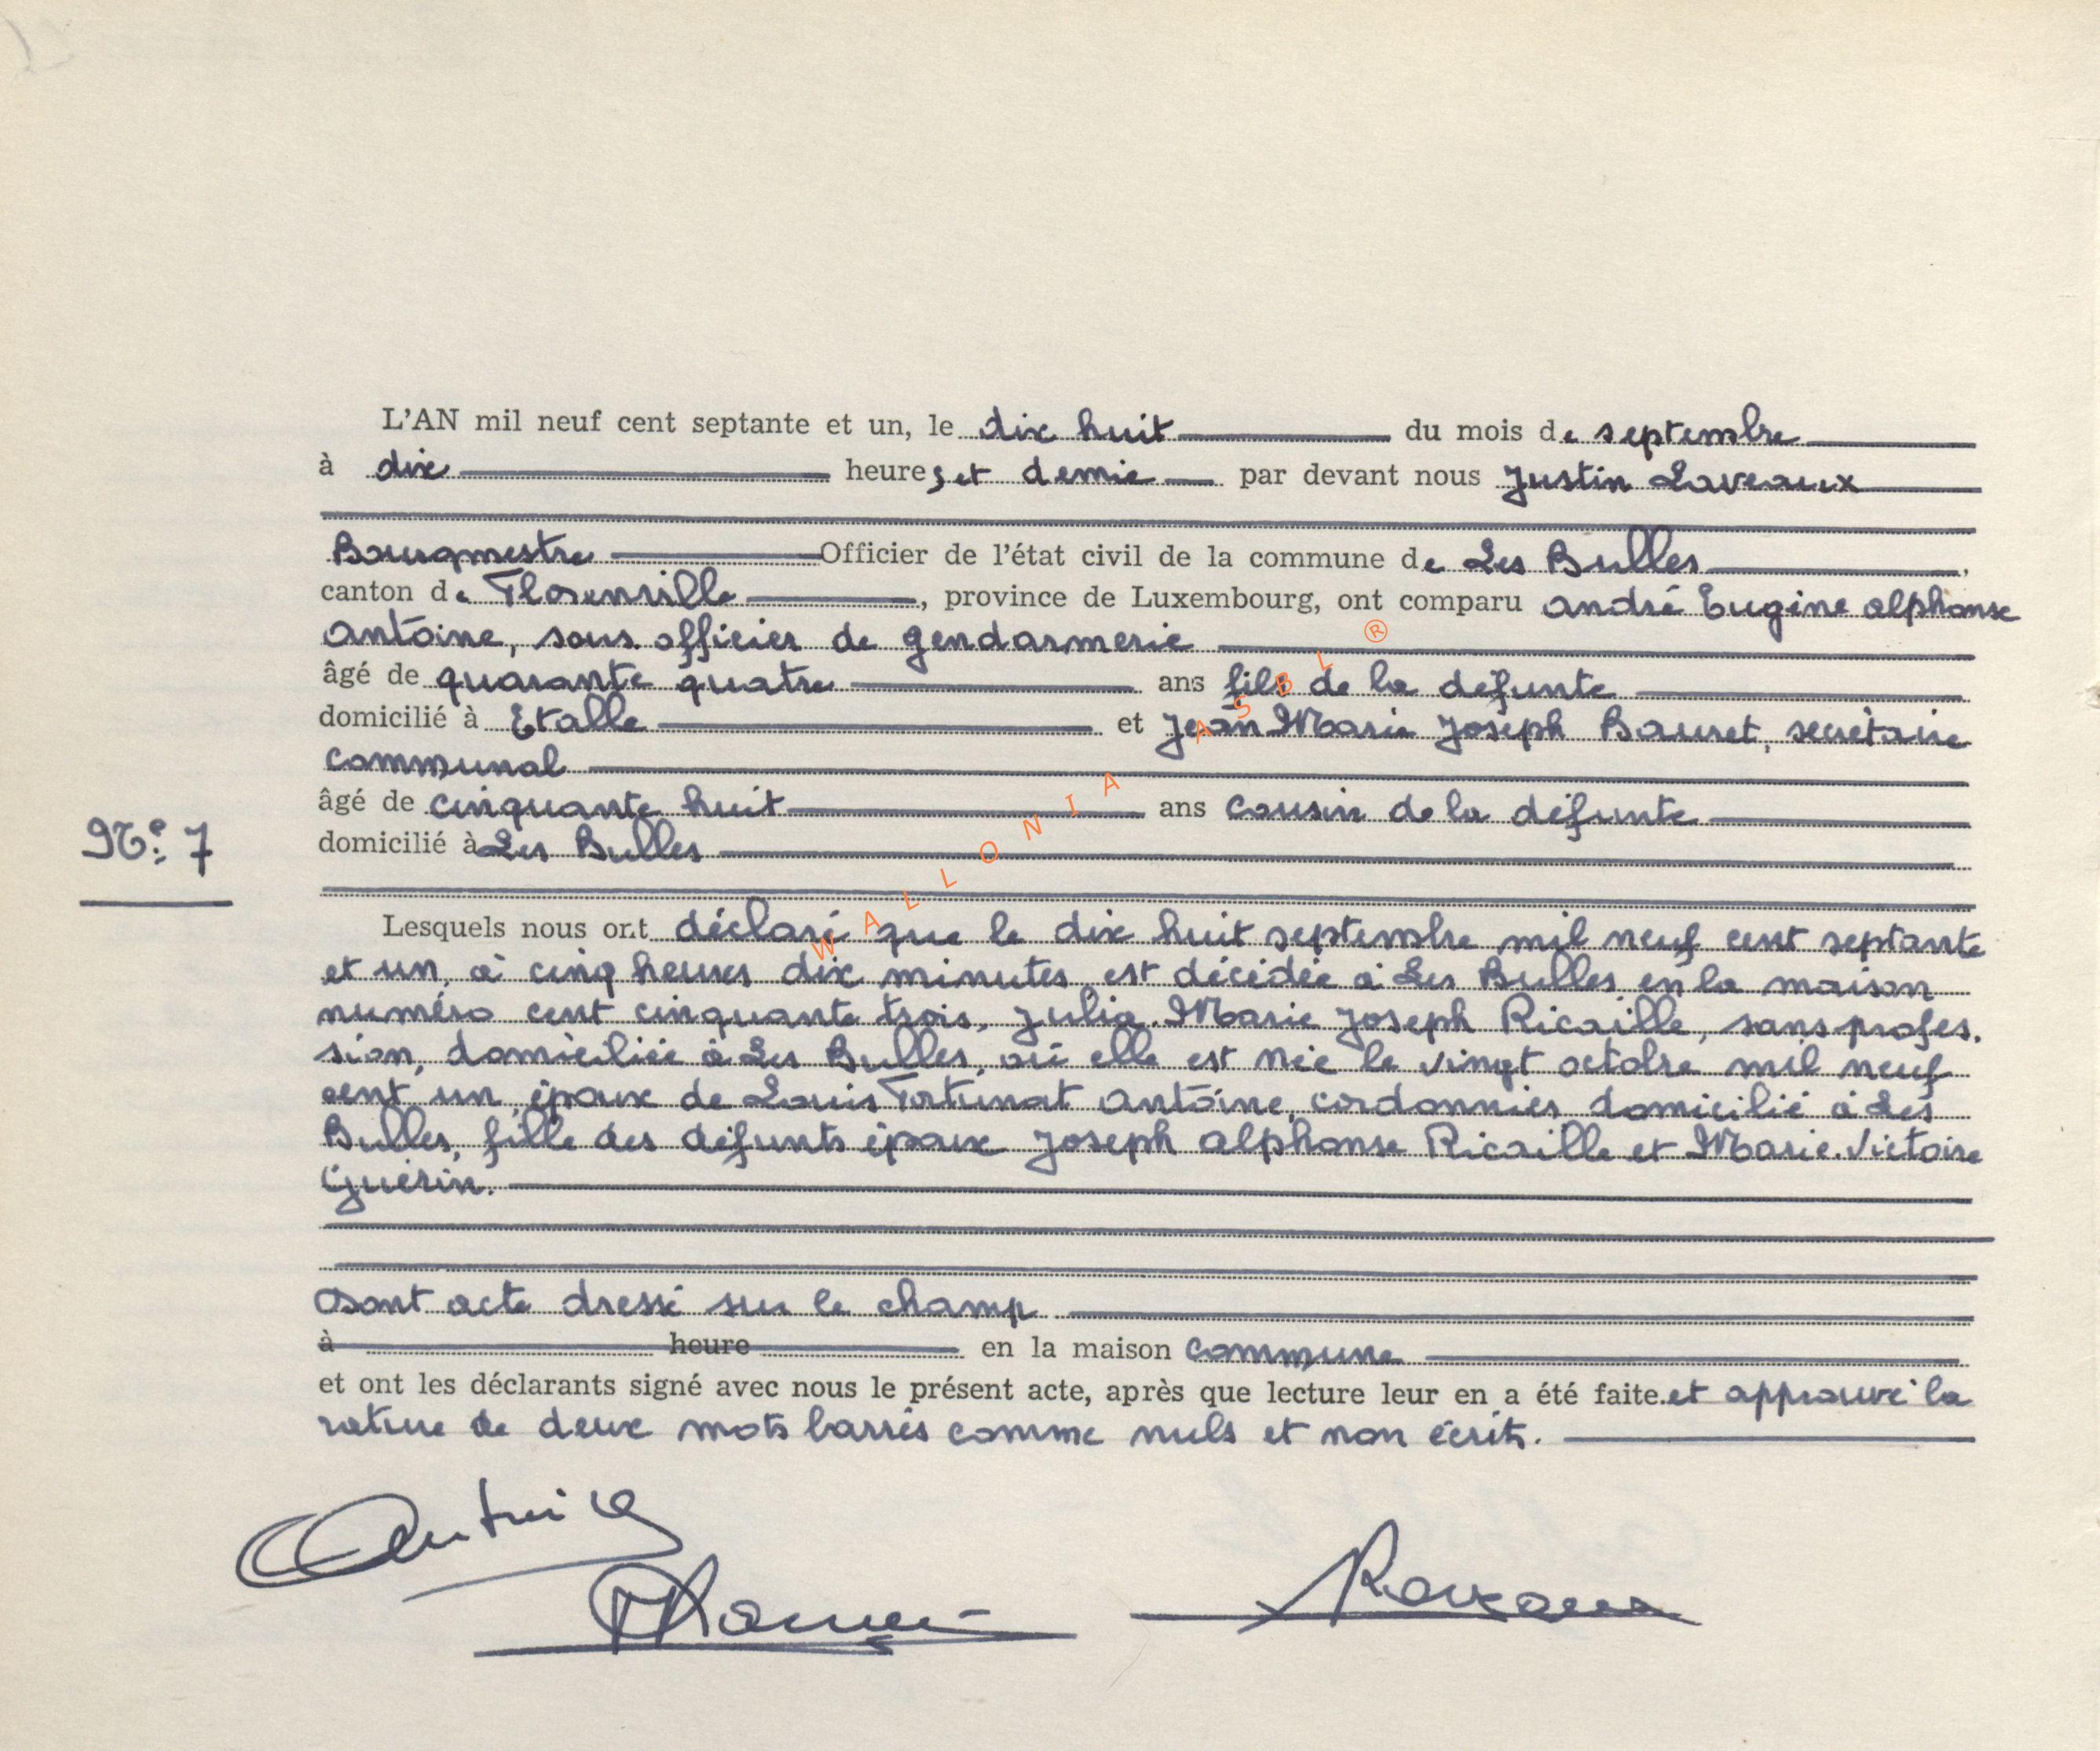 L'AN mil neuf cent septante et un, le dix huit du mois de septembre
à dix heures et demie par devant nous Justin Laveaux
Bourgmestre Officier de l'état civil de la commune de Les Bulles,
canton de Florenville, province de Luxembourg, ont comparu André Eugène Alphonse
Antoine, sous officier de gendarmerie
âgé de quarante quatre ans fils de la défunte
domicilié à Etalle et Jean Marie Joseph Bauret, secrétaire
communal
âgé de cinquante huit ans cousin de la défunte
N° 7
domicilié à Les Bulles
Lesquels nous ont déclaré que le dix huit septembre mil neuf cent septante
et un, à cinq heures dix minutes est décédée à Les Bulles en la maison
numéro cent cinquante trois, Julia. Marie Joseph Ricaille, sans profes.
sion, domiciliée à Les Bulles, où elle est née le vingt octobre mil neuf
cent un, épouse de Louis Fortunat Antoine, cordonnier domicilié à Les
Bulles, fille des défunts époux Joseph Alphonse Ricaille et Marie. Victoire
Guérin.
Dont acte dressé sur le champ
à heure en la maison commune
et ont les déclarants signé avec nous le présent acte, après que lecture leur en a été faite. et approuvé la
rature de deux mots barrés comme nuls et non écrits.
WALLONIA ASBL ®